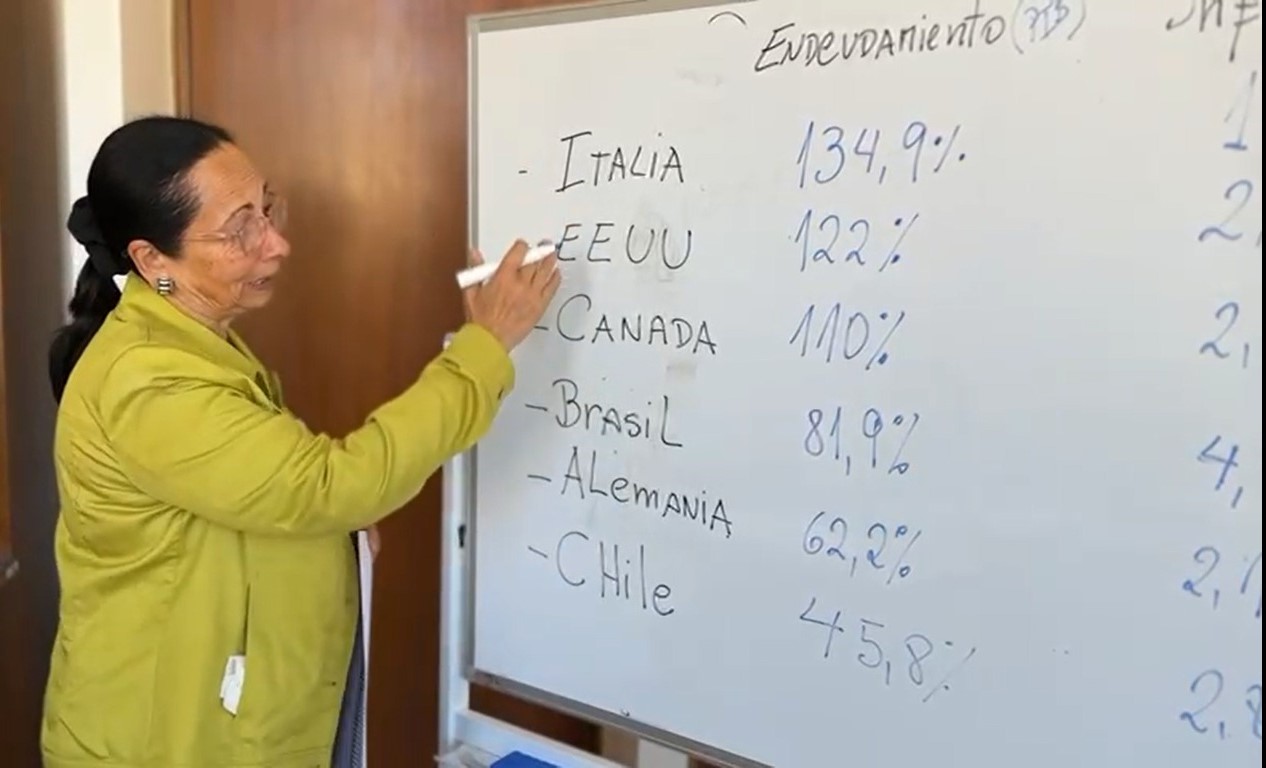 Endeudamiento (PIB) Inf
- Italia 134,9% 1
EEUU 122% 2,
- Canada 110% 2,
- Brasil 81,9% 4,
- Alemania 62,2% 2,1
- Chile 45,8% 2,8